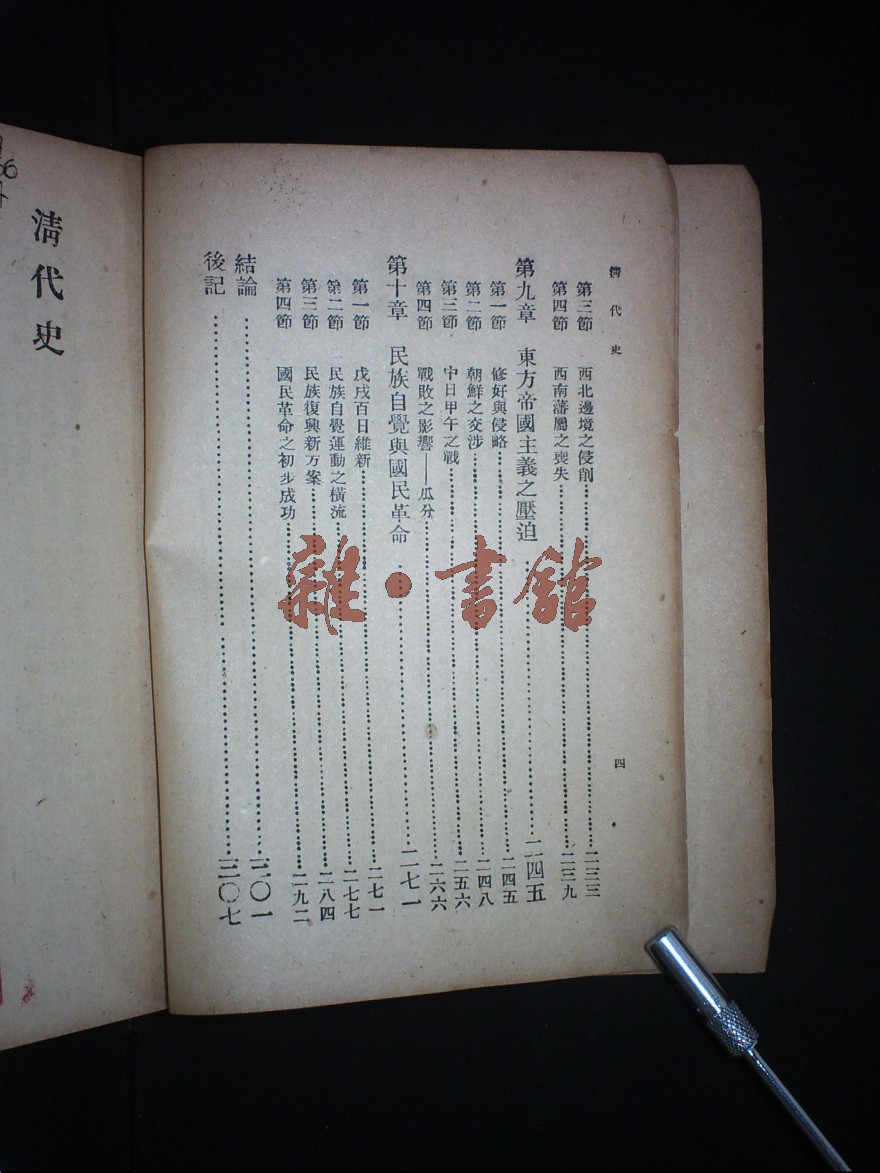 清代史
四
第三節 西北邊境之侵削……二三三
第四節 西南藩屬之喪失……二三九
第九章 東方帝國主義之壓迫……二四五
第一節 修好與侵略……二四五
第二節 朝鮮之交涉……二四八
第三節 中日甲午之戰……二五六
第四節 戰敗之影響——瓜分……二六六
第十章 民族自覺與國民革命……二七一
第一節 戊戌百日維新……二七一
第二節 民族自覺運動之橫流……二七七
第三節 民族復興新方案……二八四
第四節 國民革命之初步成功……二九二
結論……三〇一
後記……三〇七
清代史
雜·書館